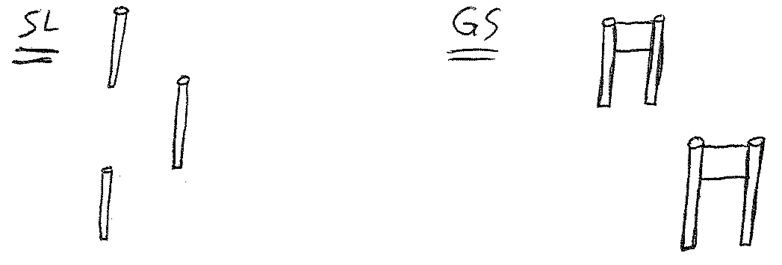 SL
GS